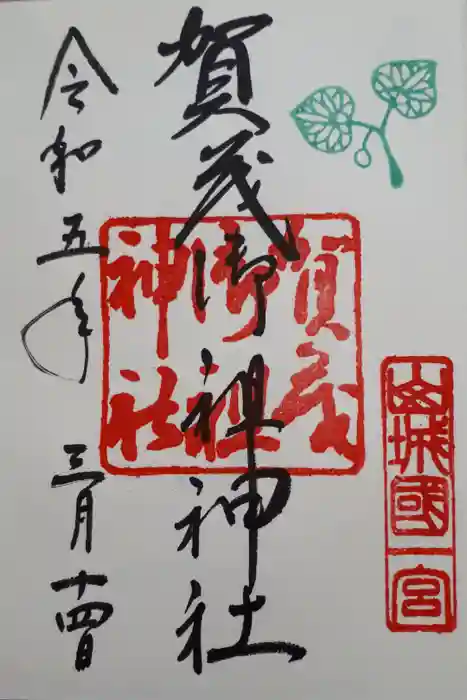 山城國一宮
賀茂御祖神社
賀茂御祖神社
令和五年 三月十四日